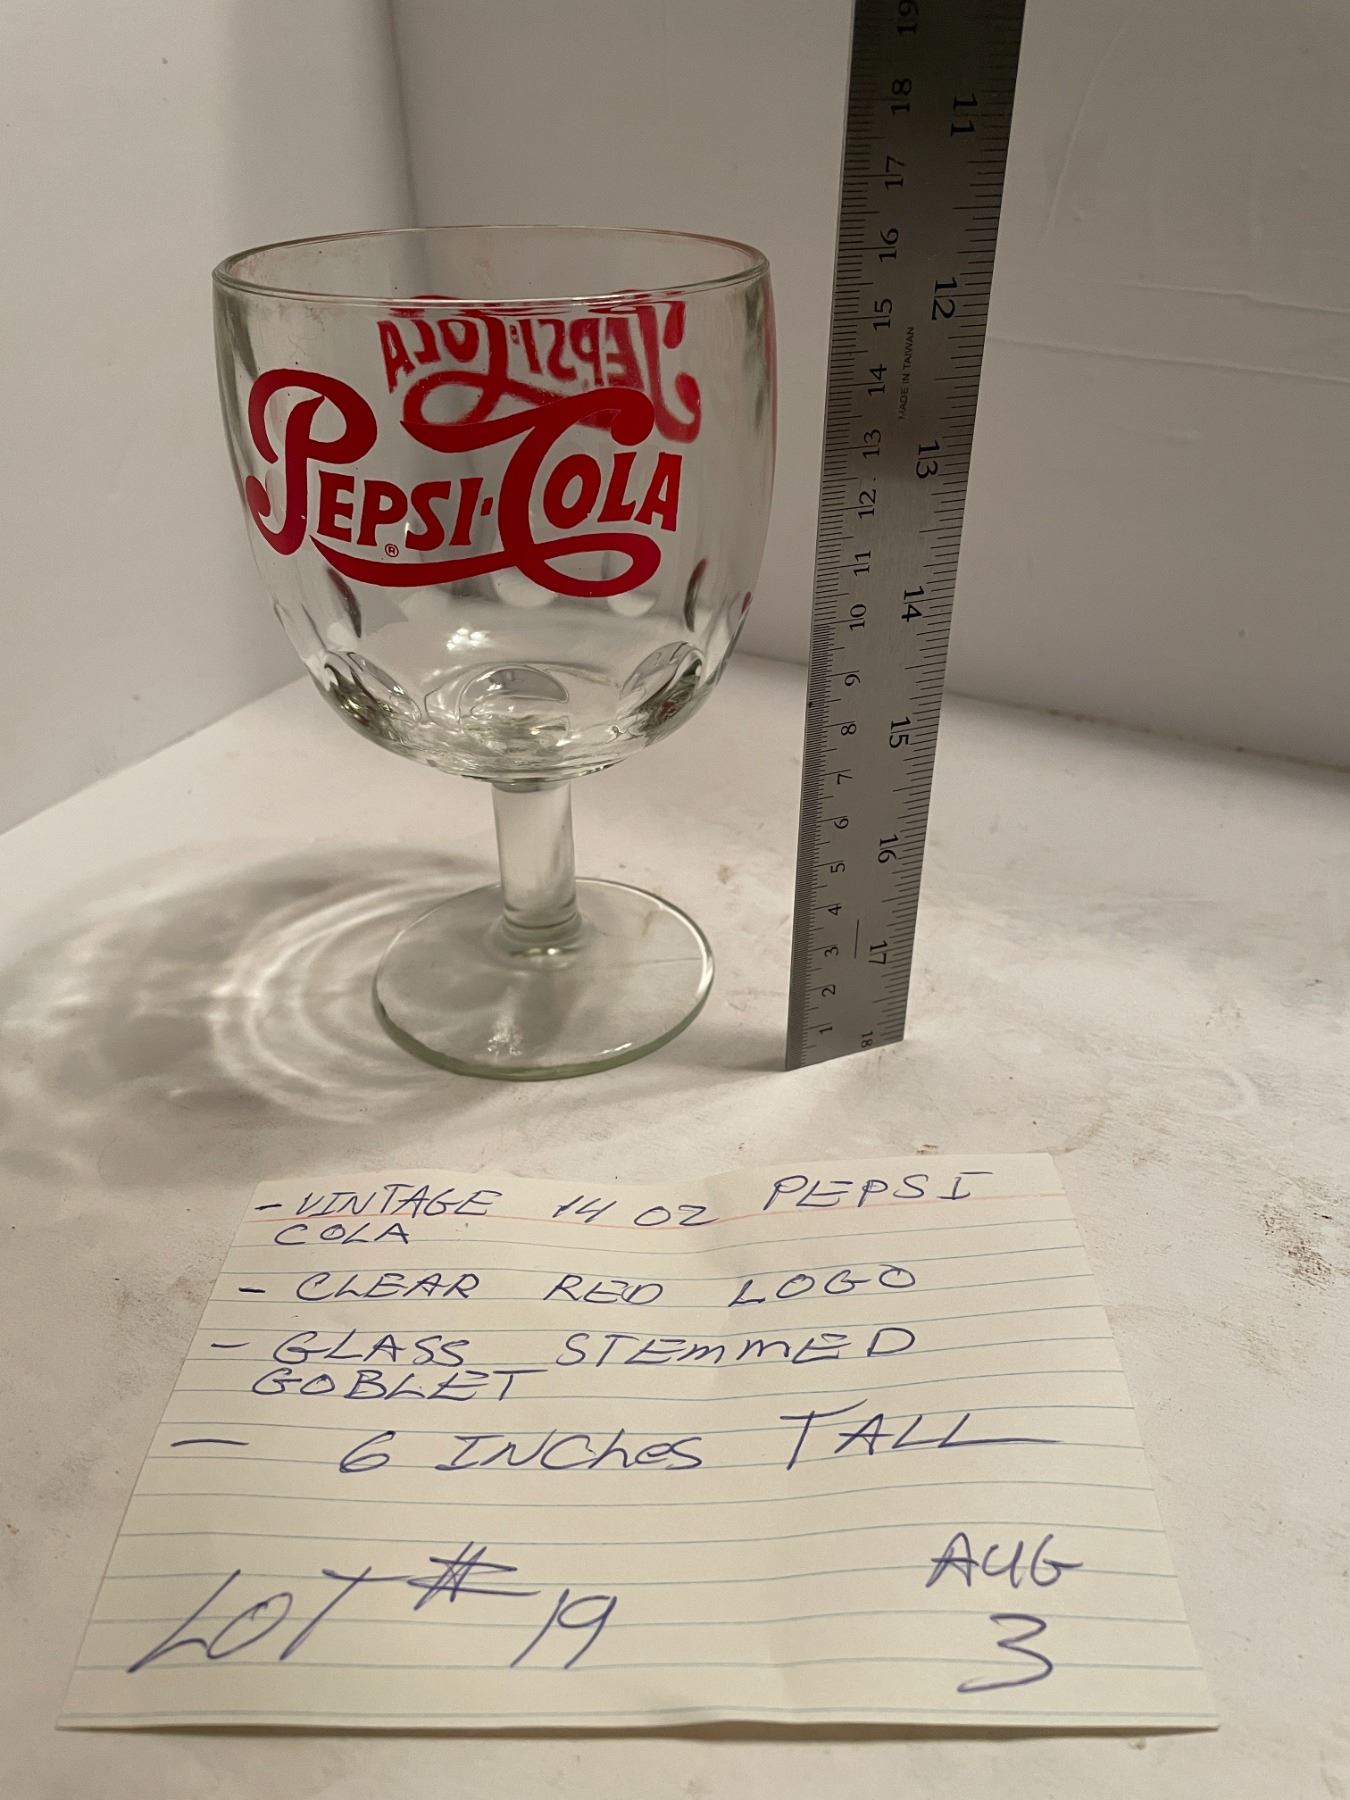 PEPSI·COLA
®
PEPSI·COLA
19
18
17
16
15
14
13
12
11
10
9
8
7
6
5
4
3
2
1
11
12
13
14
15
16
17
18
MADE IN TAIWAN
- VINTAGE 14 OZ PEPSI
COLA
- CLEAR RED LOGO
- GLASS STEMMED
GOBLET
- 6 INCHES TALL
LOT # 19
AUG
3